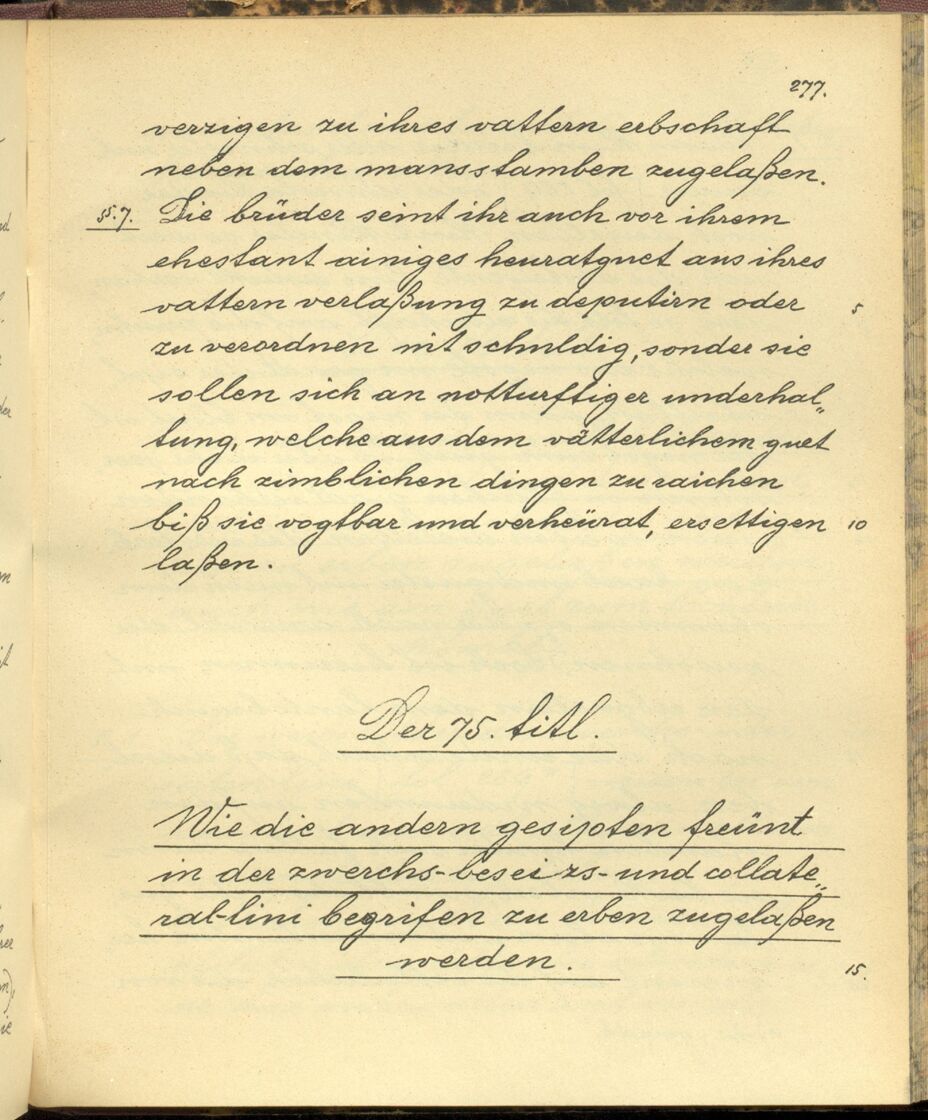 277.
verzigen zu ihres vattern erbschaft
neben dem mansstamben zugelaßen.
§§.7. Die brüder seint ihr auch vor ihrem
ehestant ainiges heuratguet aus ihres
vattern verlaßung zu deputirn oder 5
zu verordnen nit schuldig, sonder sie
sollen sich an notturftiger underhal„
tung, welche aus dem vätterlichem guet
nach zimblichen dingen zu raichen
biß sie vogtbar und verheürat, ersettigen 10
laßen.
Der 75. titl.
Wie die andern gesipten freünt
in der zwerchs- beseizs- und collate„
ral-lini begrifen zu erben zugelaßen
werden. 15.